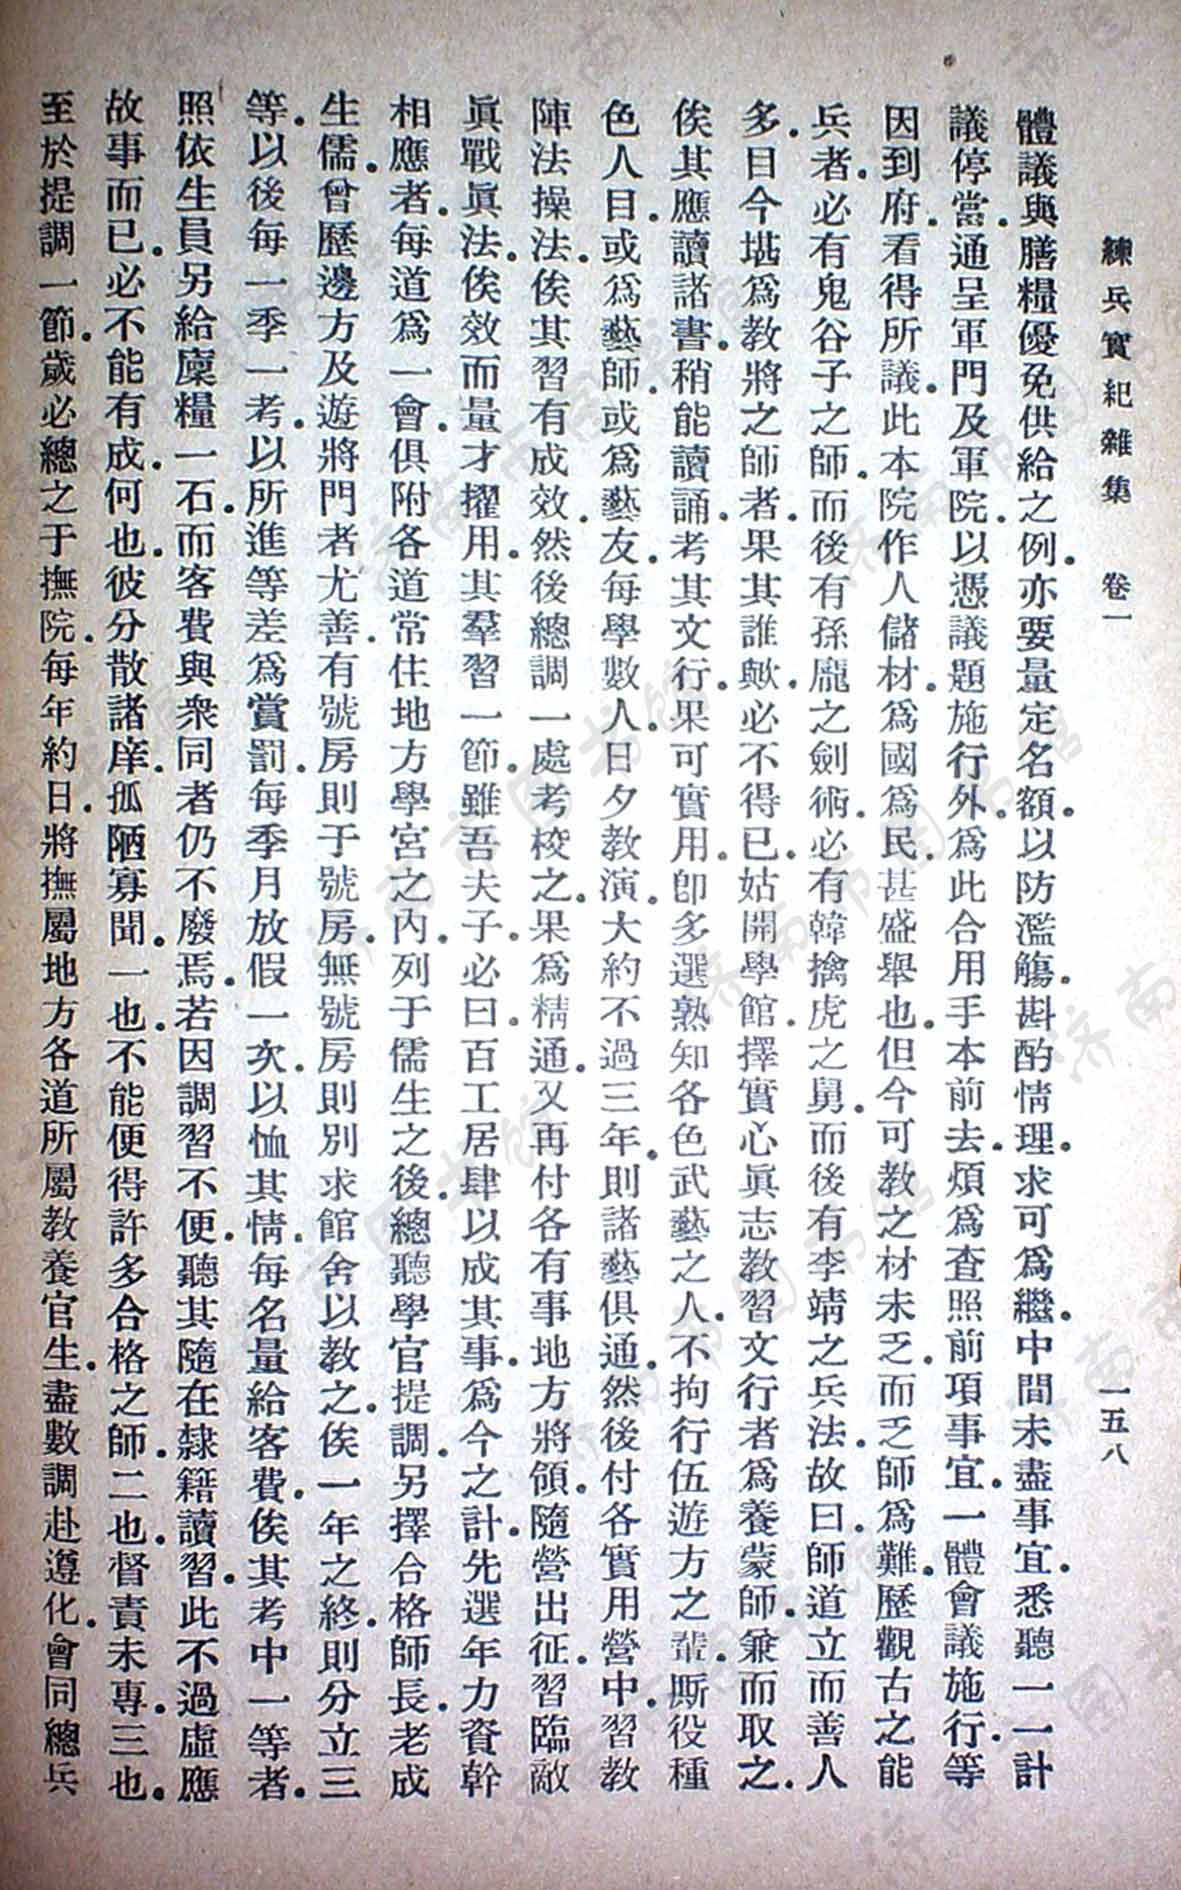 練兵實紀雜集　卷一　一五八
體議與膳糧優免供給之例．亦要量定名額．以防濫觴．斟酌情理．求可爲繼．中間未盡事宜．悉聽一一計
議停當．通呈軍門及軍院．以憑議題施行外．爲此合用手本前去．煩爲查照前項事宜．一體會議施行．等
因到府．看得所議．此本院作人儲材．爲國爲民．甚盛舉也．但今可教之材未乏．而乏師爲難．歷觀古之能
兵者．必有鬼谷子之師．而後有孫龐之劍術．必有韓擒虎之舅．而後有李靖之兵法．故曰．師道立而善人
多．目今堪爲教將之師者．果其誰歟．必不得已．姑開學館．擇實心眞志教習文行者爲養蒙師．兼而取之．
俟其應讀諸書．稍能讀誦．考其文行．果可實用．卽多選熟知各色武藝之人．不拘行伍遊方之輩．廝役種
色人目．或爲藝師．或爲藝友．每學數人．日夕教演．大約不過三年．則諸藝俱通．然後付各實用營中．習教
陣法操法．俟其習有成效．然後總調一處考校之．果爲精通．又再付各有事地方將領．隨營出征．習臨敵
眞戰眞法．俟效而量才擢用．其羣習一節．雖吾夫子．必曰．百工居肆以成其事．爲今之計．先選年力資幹
相應者．每道爲一會．俱附各道常住地方學宮之內．列于儒生之後．總聽學官提調．另擇合格師長．老成
生儒．曾歷邊方及遊將門者尤善．有號房則于號房．無號房則別求館舍以教之．俟一年之終．則分立三
等．以後每一季一考．以所進等差爲賞罰．每季月放假一次．以恤其情．每名量給客費．俟其考中一等者．
照依生員另給廩糧一石．而客費與衆同者仍不廢焉．若因調習不便．聽其隨在隸籍讀習．此不過虛應
故事而已．必不能有成．何也．彼分散諸庠．孤陋寡聞．一也．不能便得許多合格之師．二也．督責未專．三也．
至於提調一節．歲必總之于撫院．每年約日．將撫屬地方各道所屬教養官生．盡數調赴遵化．會同總兵